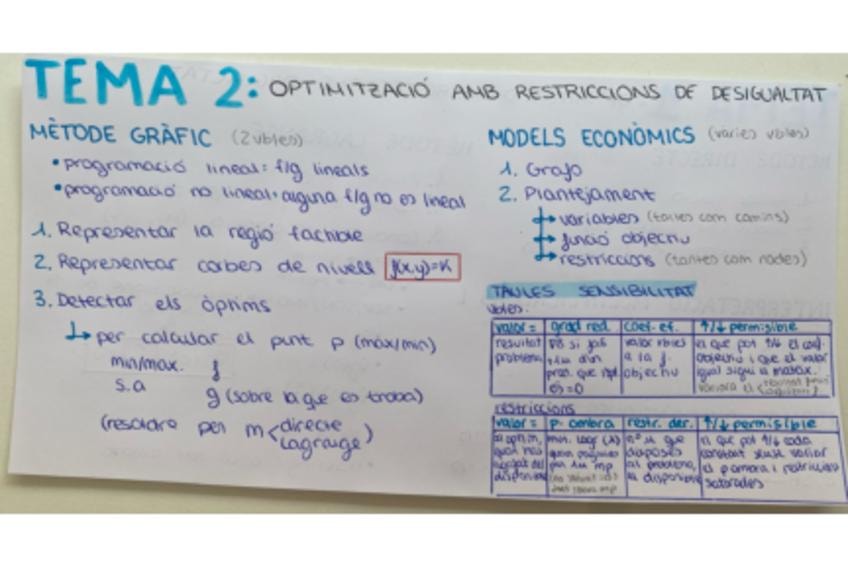 TEMA 2: OPTIMITZACIÓ AMB RESTRICCIONS DE DESIGUALTAT
MÈTODE GRÀFIC (2vbles)
• programació lineal: f/g lineals
• programació no lineal: alguna f/g no es lineal
1. Representar la regió factible
2. Representar corbes de nivell f(x,y)=K
3. Detectar els òptims
↳ per calcular el punt p (màx/min)
min/max. f
s.a g (sobre la que es troba)
(resoldre per m < directe
Lagrange)
MODELS ECONÒMICS (varies vbles)
1. Grafo
2. Plantejament
↳ variables (tantes com camins)
↳ funció objectiu
↳ restriccions (tantes com nodes)
TAULES SENSIBILITAT
vbles:
valor = grad red. coef. ef. ↑/↓ permisible
resultat
problema
valor vbles
a la f.
objectiu
el que pot ↑/↓ el coef.
objectiu i que el valor
igual sigui la mateix.
restriccions
valor = p. ombra restr. der. ↑/↓ permisible
que
disposes
al problema,
disponible
el que pot ↑/↓ cada
constant sense variar
el p. ombra i restriccions
saturades